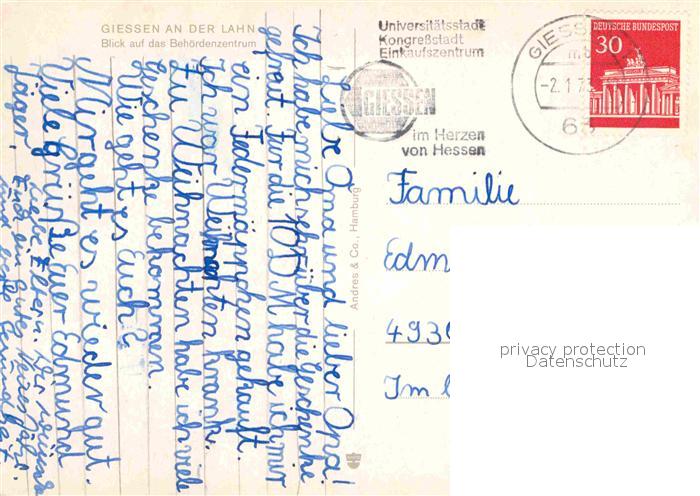 GIESSEN AN DER LAHN
Blick auf das Behördenzentrum
Universitätsstadt
Kongreßstadt
Einkaufszentrum
GIESSEN
im Herzen
von Hessen
GIESS
-2.1.7
63
DEUTSCHE BUNDESPOST
30
Liebe Oma und lieber Opa!
Ich habe mich sehr über die Geschenke
gefreut. Für die 10 DM habe ich mir
ein Federmännchen gekauft.
Ich war Weihnachten krank.
Zu Weihnachten habe ich viele
Geschenke bekommen.
Wie geht es Euch?
Mir geht es wieder gut.
Viele Grüße Euer Edmund
Liebe Eltern. Wir
Euch ein gutes neues Jahr
und beste Gesundheit
Andres & Co., Hamburg
Familie
Edm
493
Im
privacy protection
Datenschutz